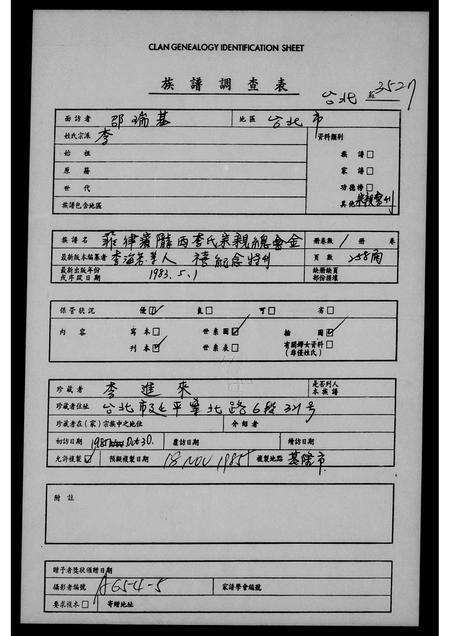 CLAN GENEALOGY IDENTIFICATION SHEET
族譜調查表
台北 3527
面訪者 邵瑞基 地區 台北市
姓氏宗派 李 資料類別
始祖 族譜□
原籍 家譜□
世代 功德榜□
族譜包含地區 其他 宗親會刊
族譜名 菲律賓隴西李氏宗親總會金禧紀念特刊 冊卷數 1 冊 卷
最新版本編纂者 頁數 258面
最新出版年份或序跋日期 1983.5.1 缺冊缺頁部份損壞
保管狀況 優☑ 良□ 可□ 劣□
內容 寫本□ 世系圖☑ 插圖☑
刊本☑ 世系表□ 有關婦女資料□(非僅姓氏)
珍藏者 李進來 是否列入本族譜
珍藏者住址 台北市延平北路6段321号
珍藏者在(家)宗族中之地位 介紹者
初訪日期 1985 Oct 30. 覆訪日期 續訪日期
允許複製☑ 預擬複製日期 18 NOV 1985 複製地點 基隆市
附註
贈予者獎狀頒贈日期
攝影者編號 A654-5 家譜學會編號
要求複本□ 寄贈地址